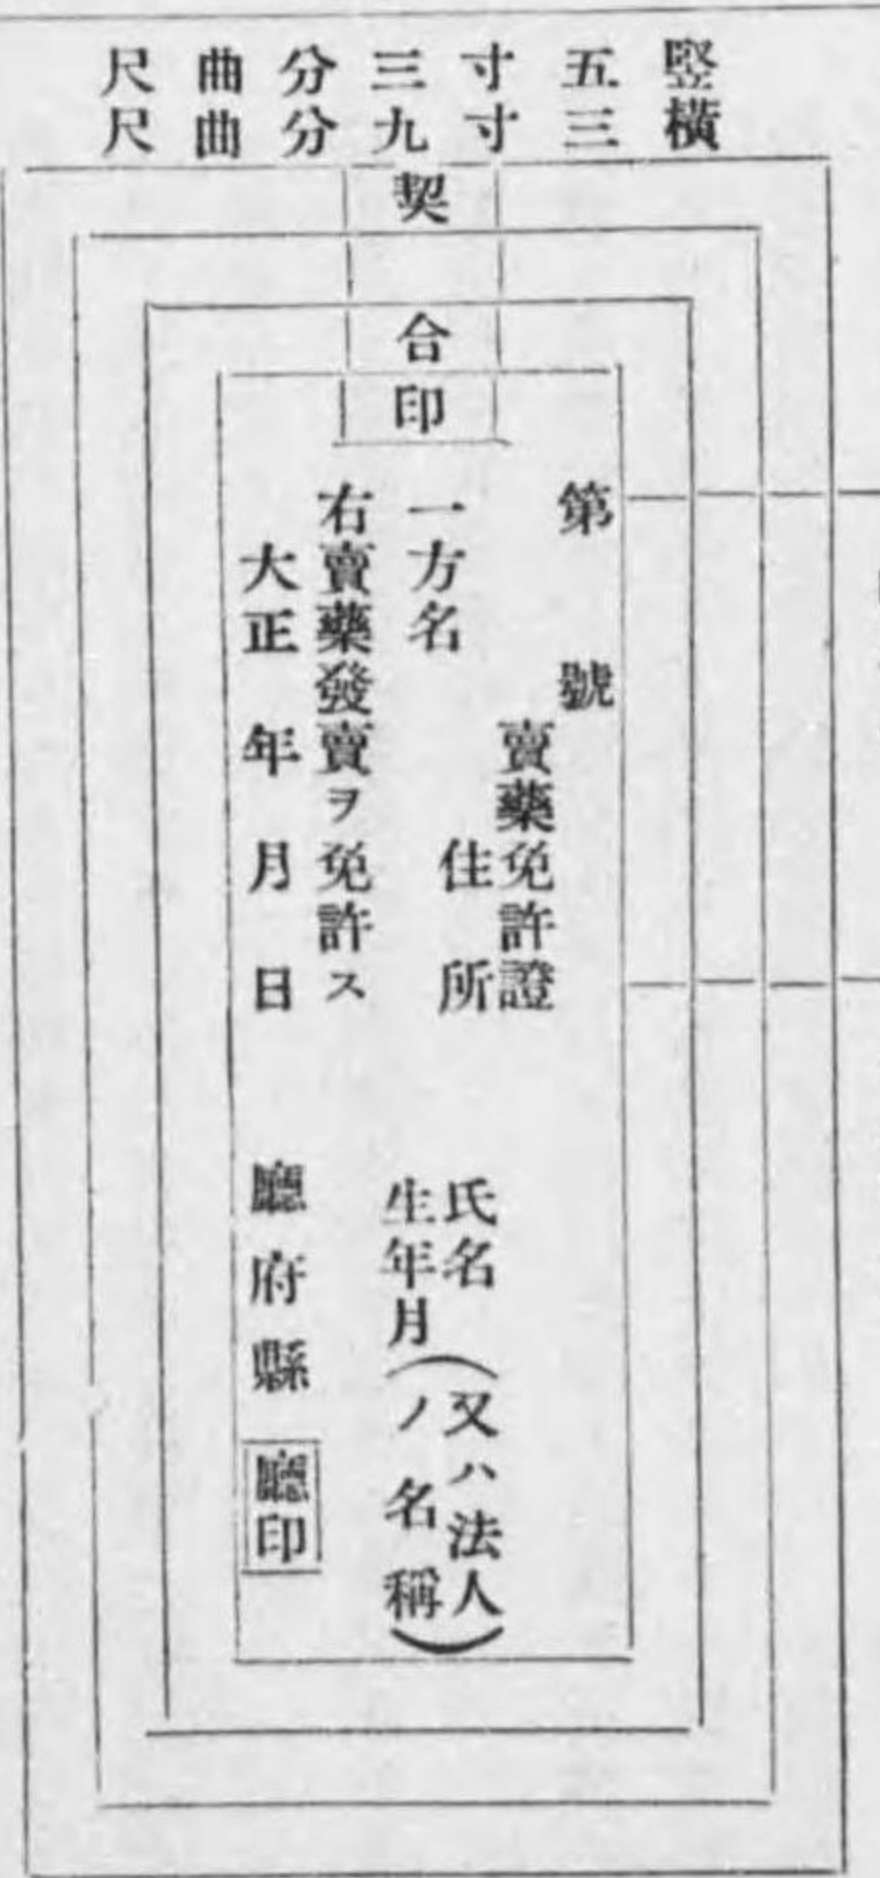 竪五寸三分曲尺
横三寸九分曲尺
契合印
第號
賣藥免許證
住所
氏名
生年月
(又ハ法人ノ名稱)
一方名
右賣藥發賣ヲ免許ス
大正年月日
廳府縣
廳印